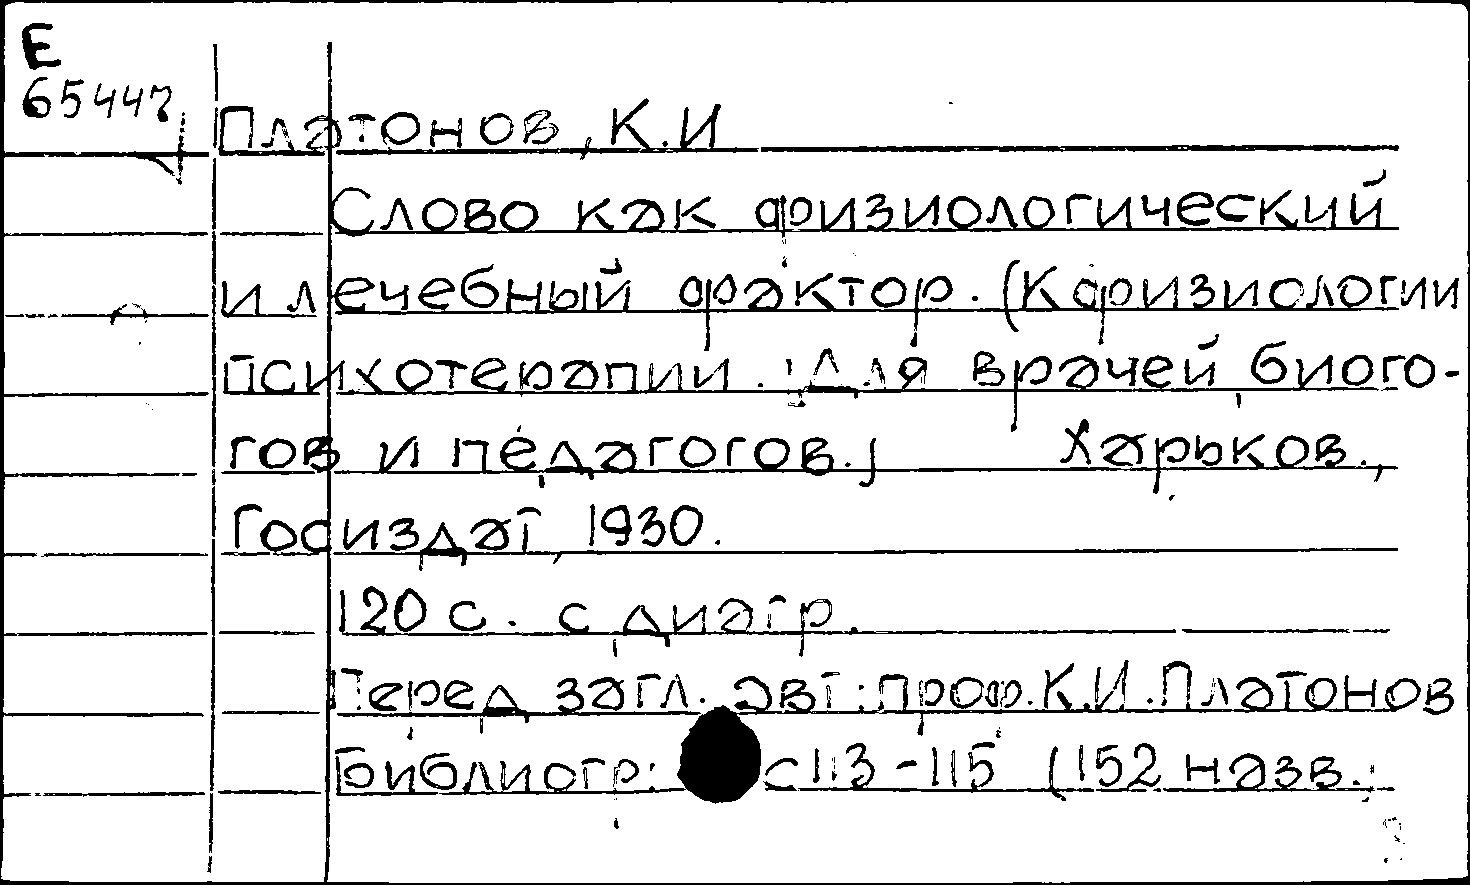 Е
65447
Платонов, К.И
Слово как физиологический
и лечебный фактор. (К физиологии
психотерапии. Для врачей биого-
гов и педагогов.) Харьков.,
Госиздат, 1930.
120 с. с диагр.
Перед загл. авт: проф. К.И. Платонов
Библиогр: с 113-115 (152 назв.;